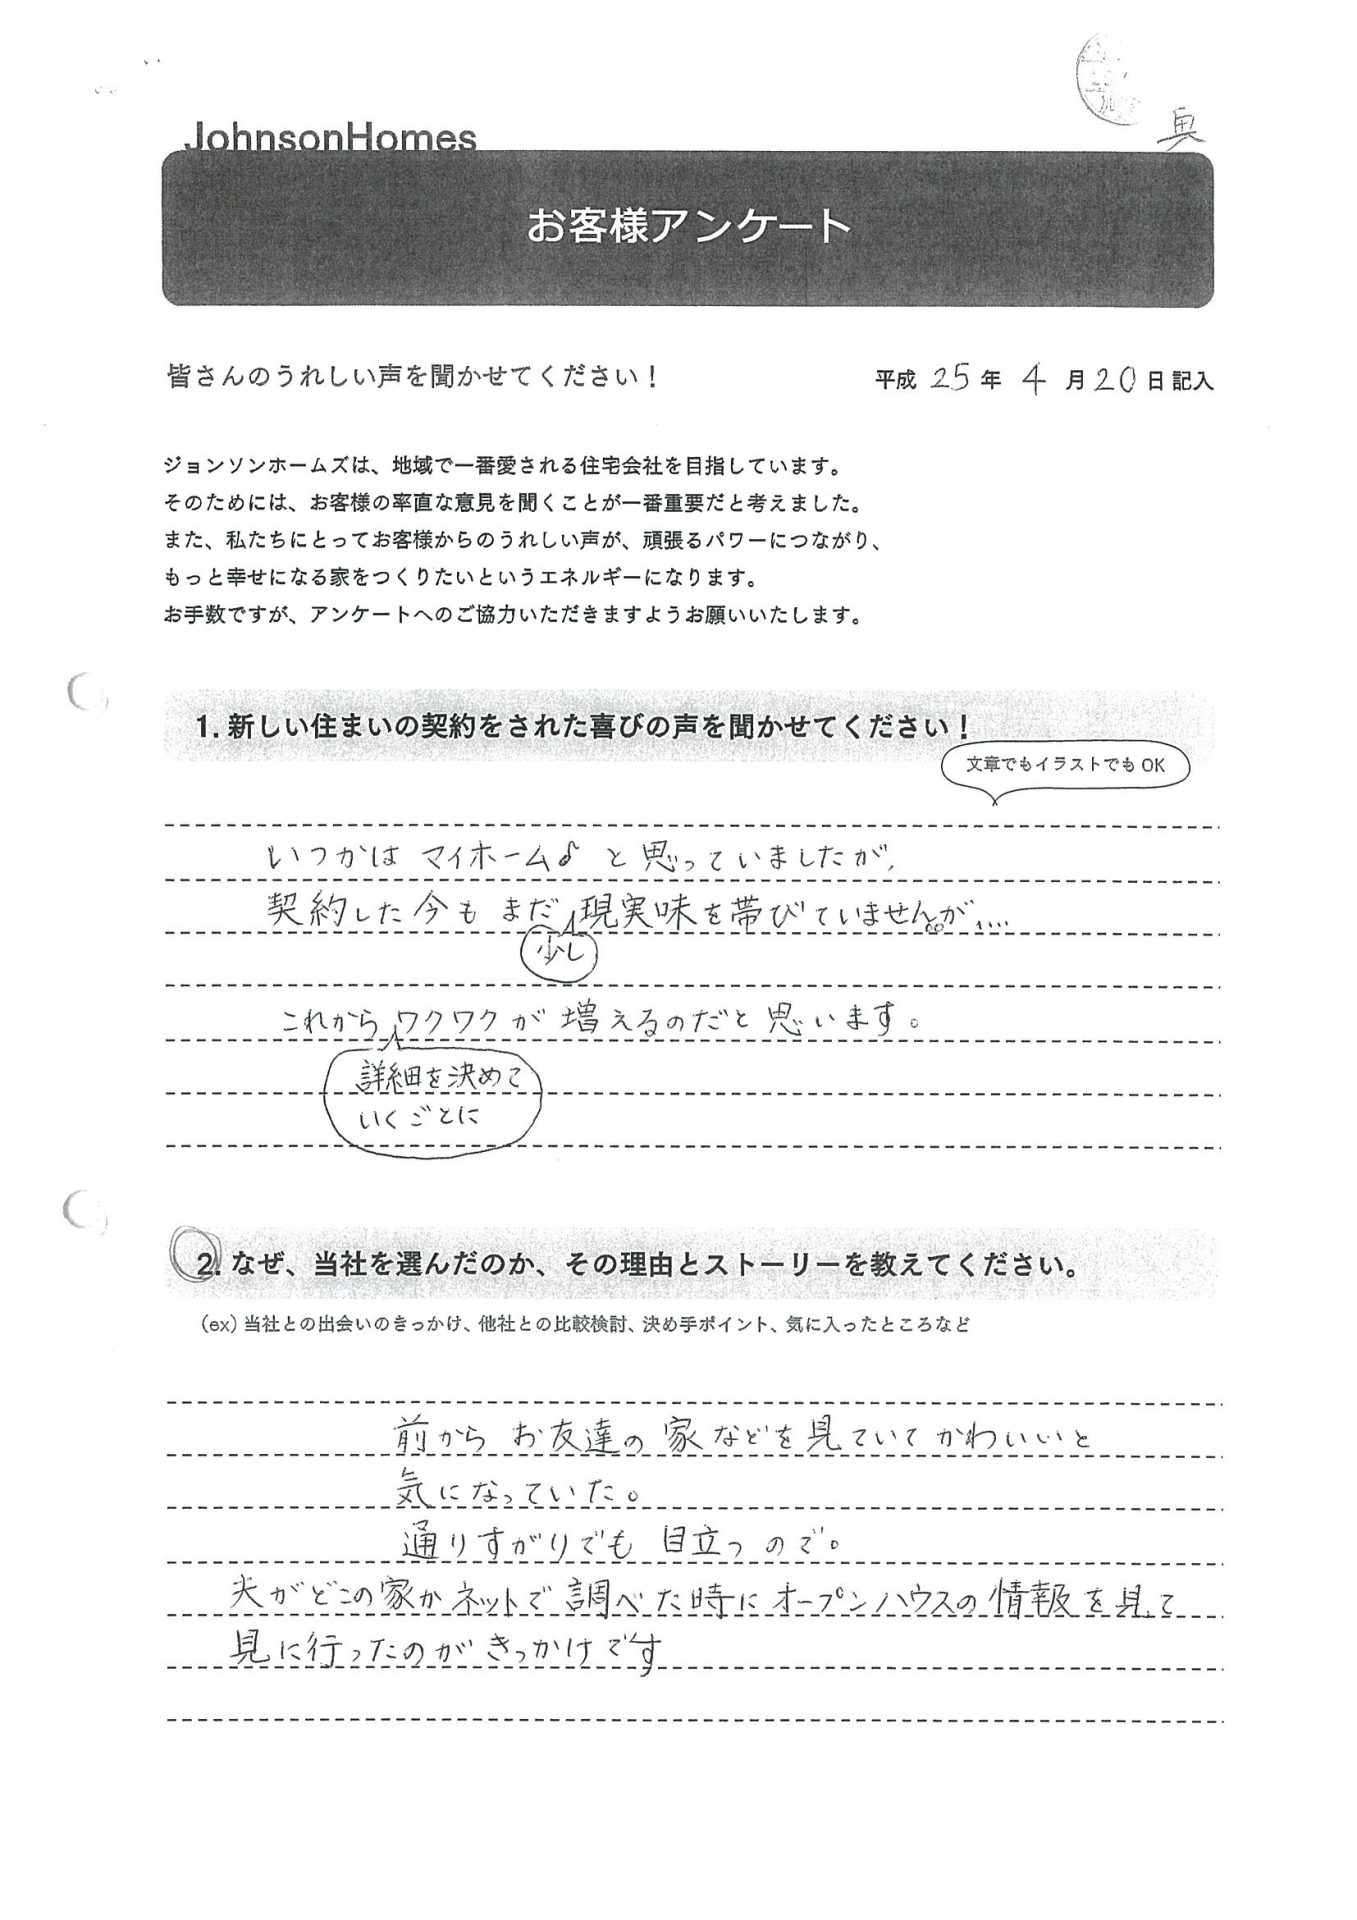 JohnsonHomes
お客様アンケート
皆さんのうれしい声を聞かせてください!
平成 25 年 4 月 20 日 記入
ジョンソンホームズは、地域で一番愛される住宅会社を目指しています。
そのためには、お客様の率直な意見を聞くことが一番重要だと考えました。
また、私たちにとってお客様からのうれしい声が、頑張るパワーにつながり、
もっと幸せになる家をつくりたいというエネルギーになります。
お手数ですが、アンケートへのご協力いただきますようお願いいたします。
1. 新しい住まいの契約をされた喜びの声を聞かせてください!
文章でもイラストでも OK
いつかは マイホーム♪ と思っていましたが、
契約した今も まだ 現実味を帯びていませんが、…
少し
これから ワクワクが 増えるのだと思います。
詳細を決めて
いくごとに
2. なぜ、当社を選んだのか、その理由とストーリーを教えてください。
(ex) 当社との出会いのきっかけ、他社との比較検討、決め手ポイント、気に入ったところなど
前から お友達の 家などを見ていて かわいいと
気になっていた。
通りすがりでも 目立つので。
夫がどこの家かネットで調べた時にオープンハウスの情報を見て
見に行ったのがきっかけです